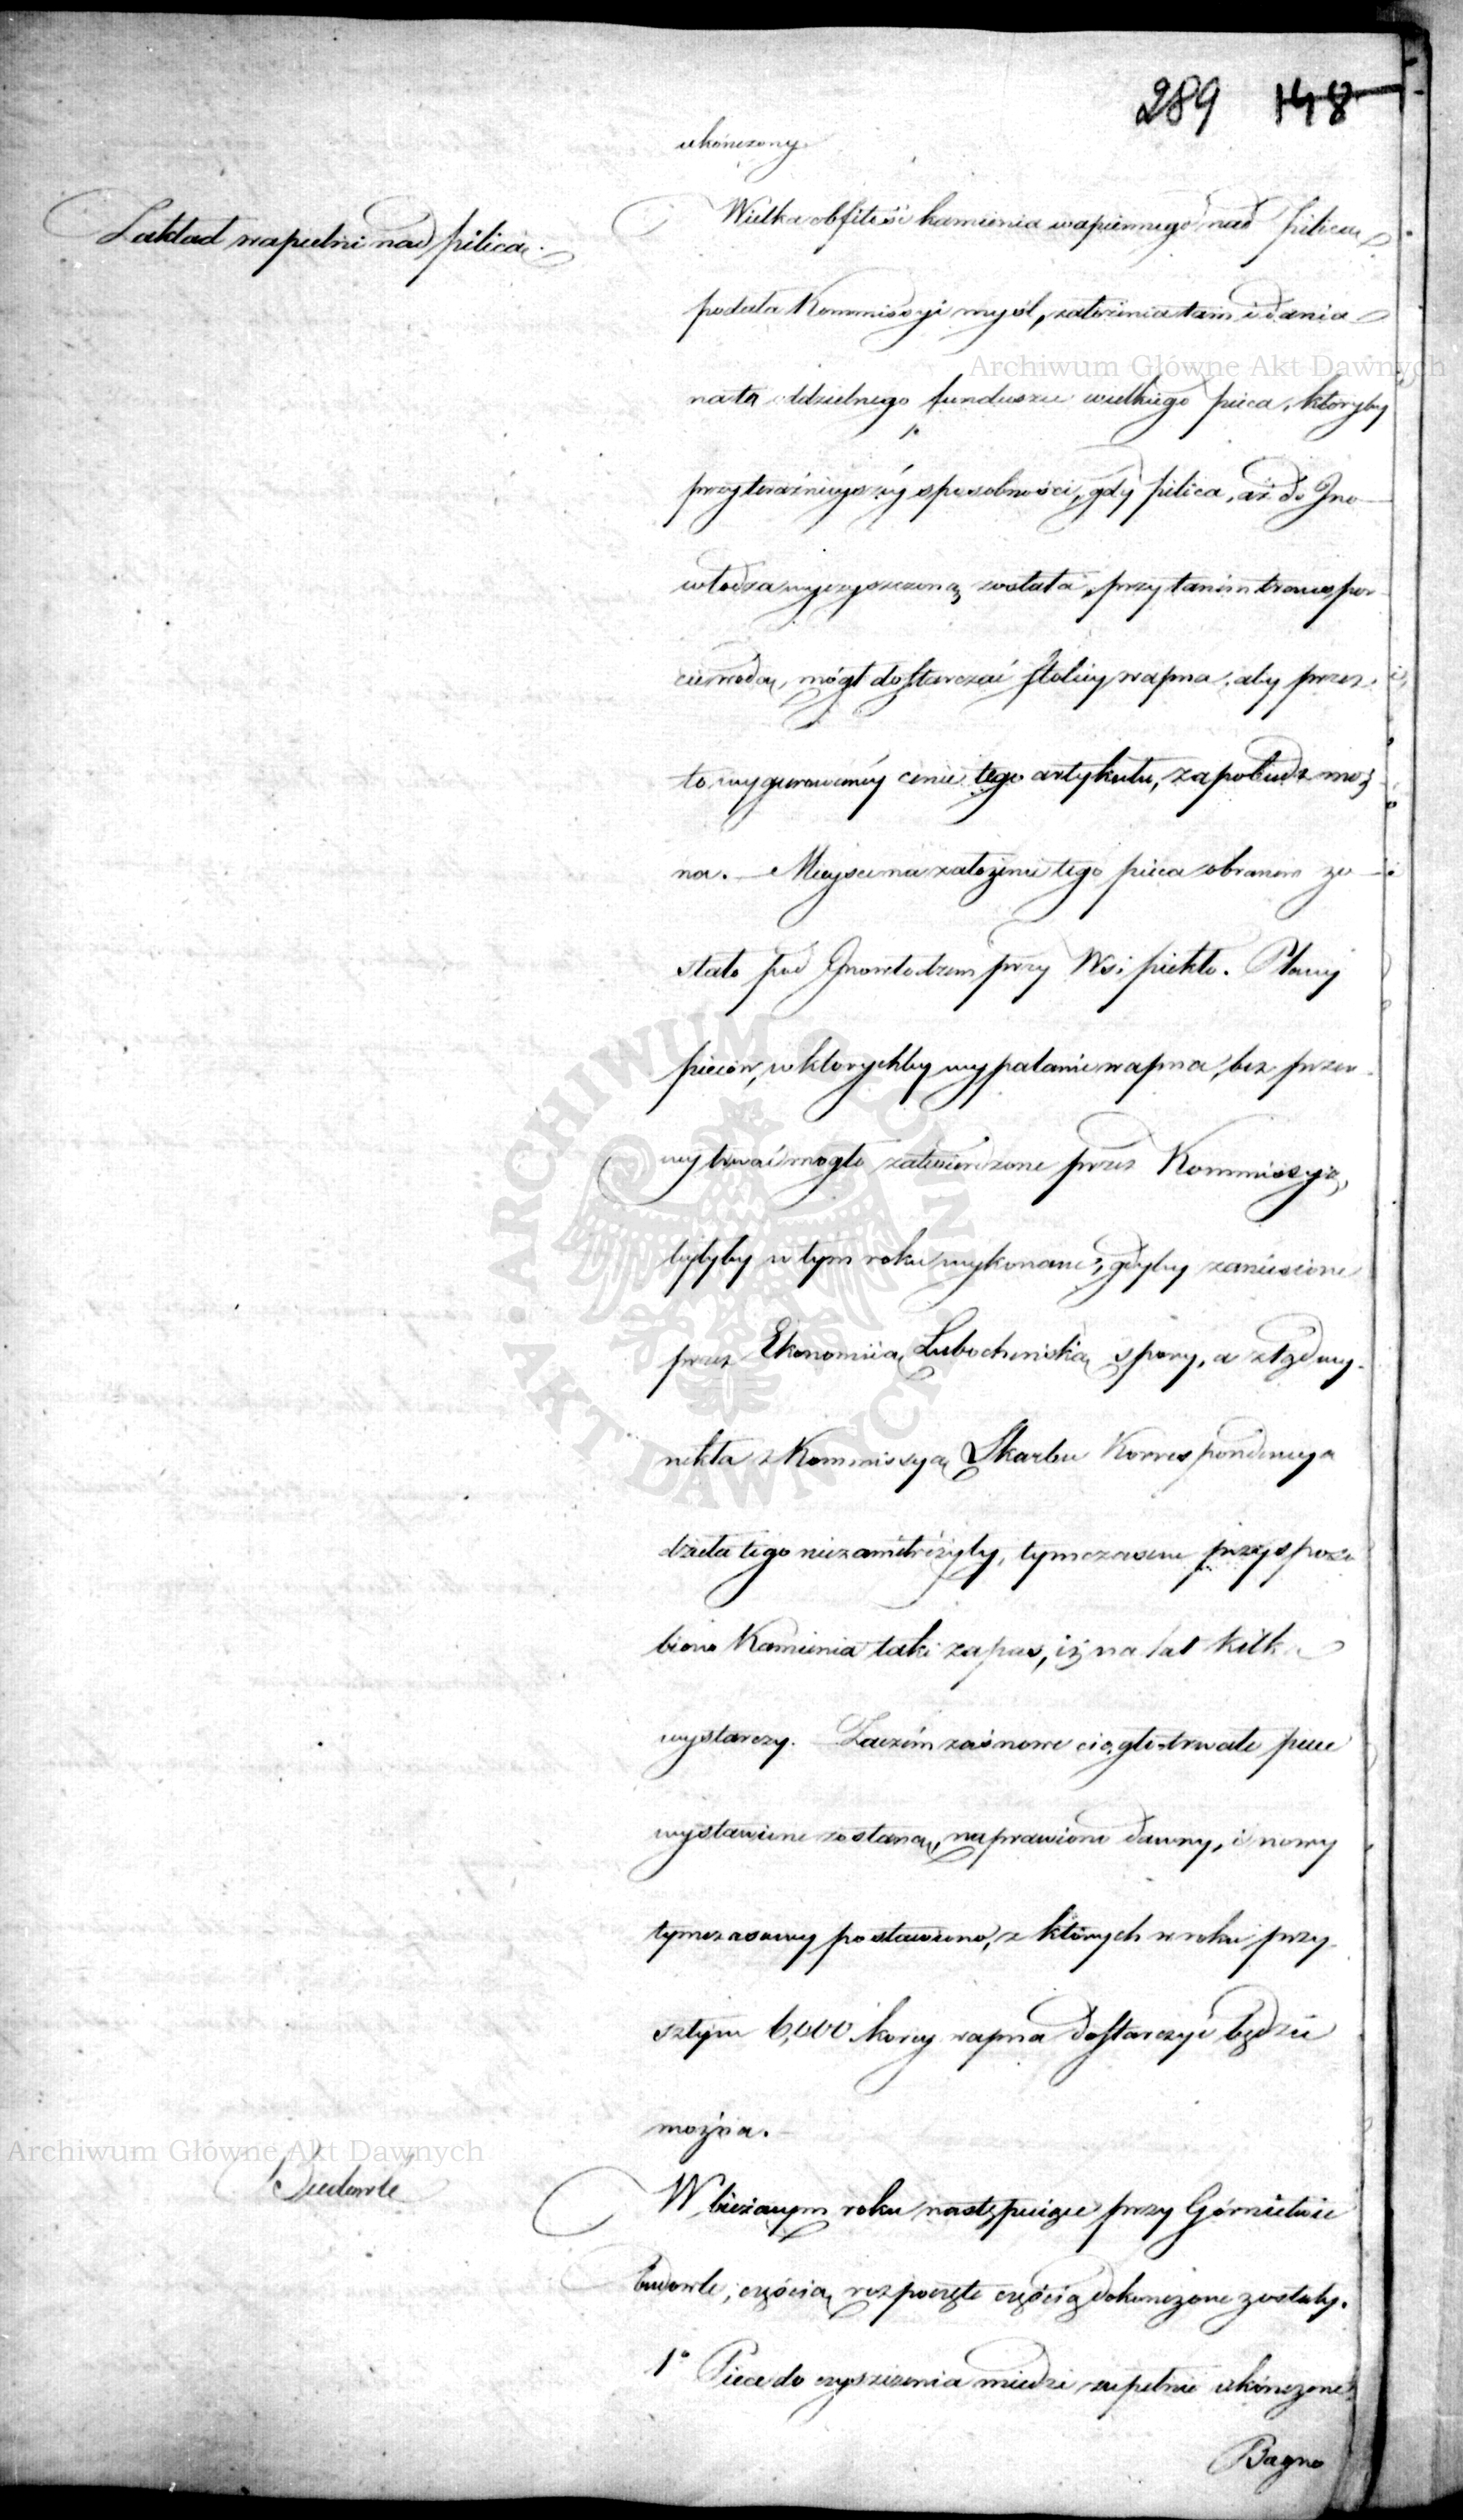 289 148
ukończony.
Zakład wapielni nad pilicą.
Wielka obfitość kamienia wapiennego nad pilicą
podała Kommissyi myśl, założenia tam i dania
na to oddzielnego funduszu wielkiego pieca, któryby
przy teraźnieyszéy sposobności, gdy pilica, aż do Ino-
włodza wyczyszczoną została, przy tanim transpor-
cie wodą, mógł dostarczać stolicy wapna; aby przez
to wygurowanéy cenie tego artykułu, zapobiedz moż
na. — Mieysce na założenie tego pieca obranem zo-
stało pod Inowłodzem przy Wsi piekło. Plany
pieców, w ktorychby wypalanie wapna, bez przer-
wy trwać mogło zatwierdzone przez Kommissyią,
byłyby w tym roku wykonane, gdyby zaniesione
przez Ekonomiią Lubocheńską spory, a ztąd wy-
nikła z Kommissyą Skarbu Korrespondencya
dzieła tego niezamitrężyły, tymczasem przysposo
biono Kamienia taki zapas, iż na lat kilka
wystarczy. Zaczém zaś nowe ciągle trwałe piece
wystawione zostaną, naprawiono dawny, i nowy
tymczasowy postawiono, z których w roku przy-
szłym 6,000 korcy wapna dostarczyć będzie
można.
Budowle
W bieżącym roku następuiące przy Górnictwie
budowle, częścią rozpoczęte częścią dokończone zostały.
1° Piece do czyszczenia miedzi zupełnie ukończone.
Bagno
Archiwum Główne Akt Dawnych
Archiwum Główne Akt Dawnych
ARCHIWUM GŁÓWNE · AKT DAWNYCH ·